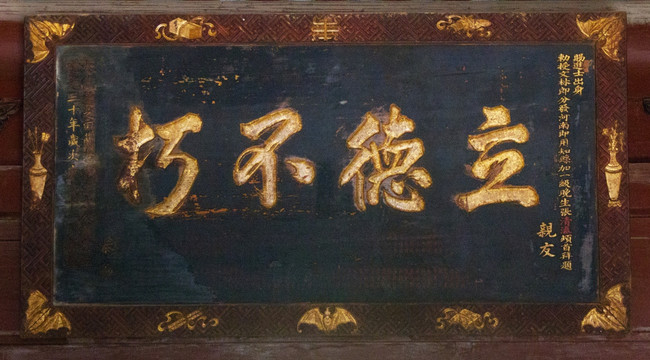 賜進士出身
勅授文林郎分發河南即用知縣加一級晚生張清瀛頓首拜題
親友
立德不朽
三十年歲次